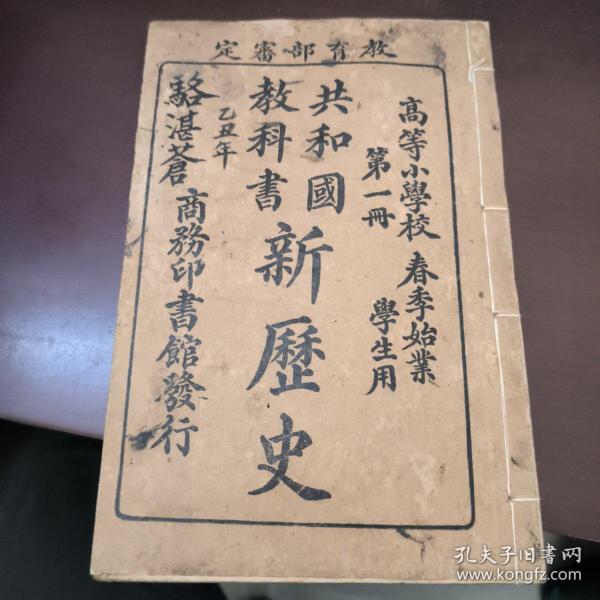 教育部審定
高等小學校 春季始業
第一冊 學生用
共和國
教科書
新歷史
乙丑年
駱湛蒼
商務印書館發行
孔夫子旧书网
www.kongfz.com